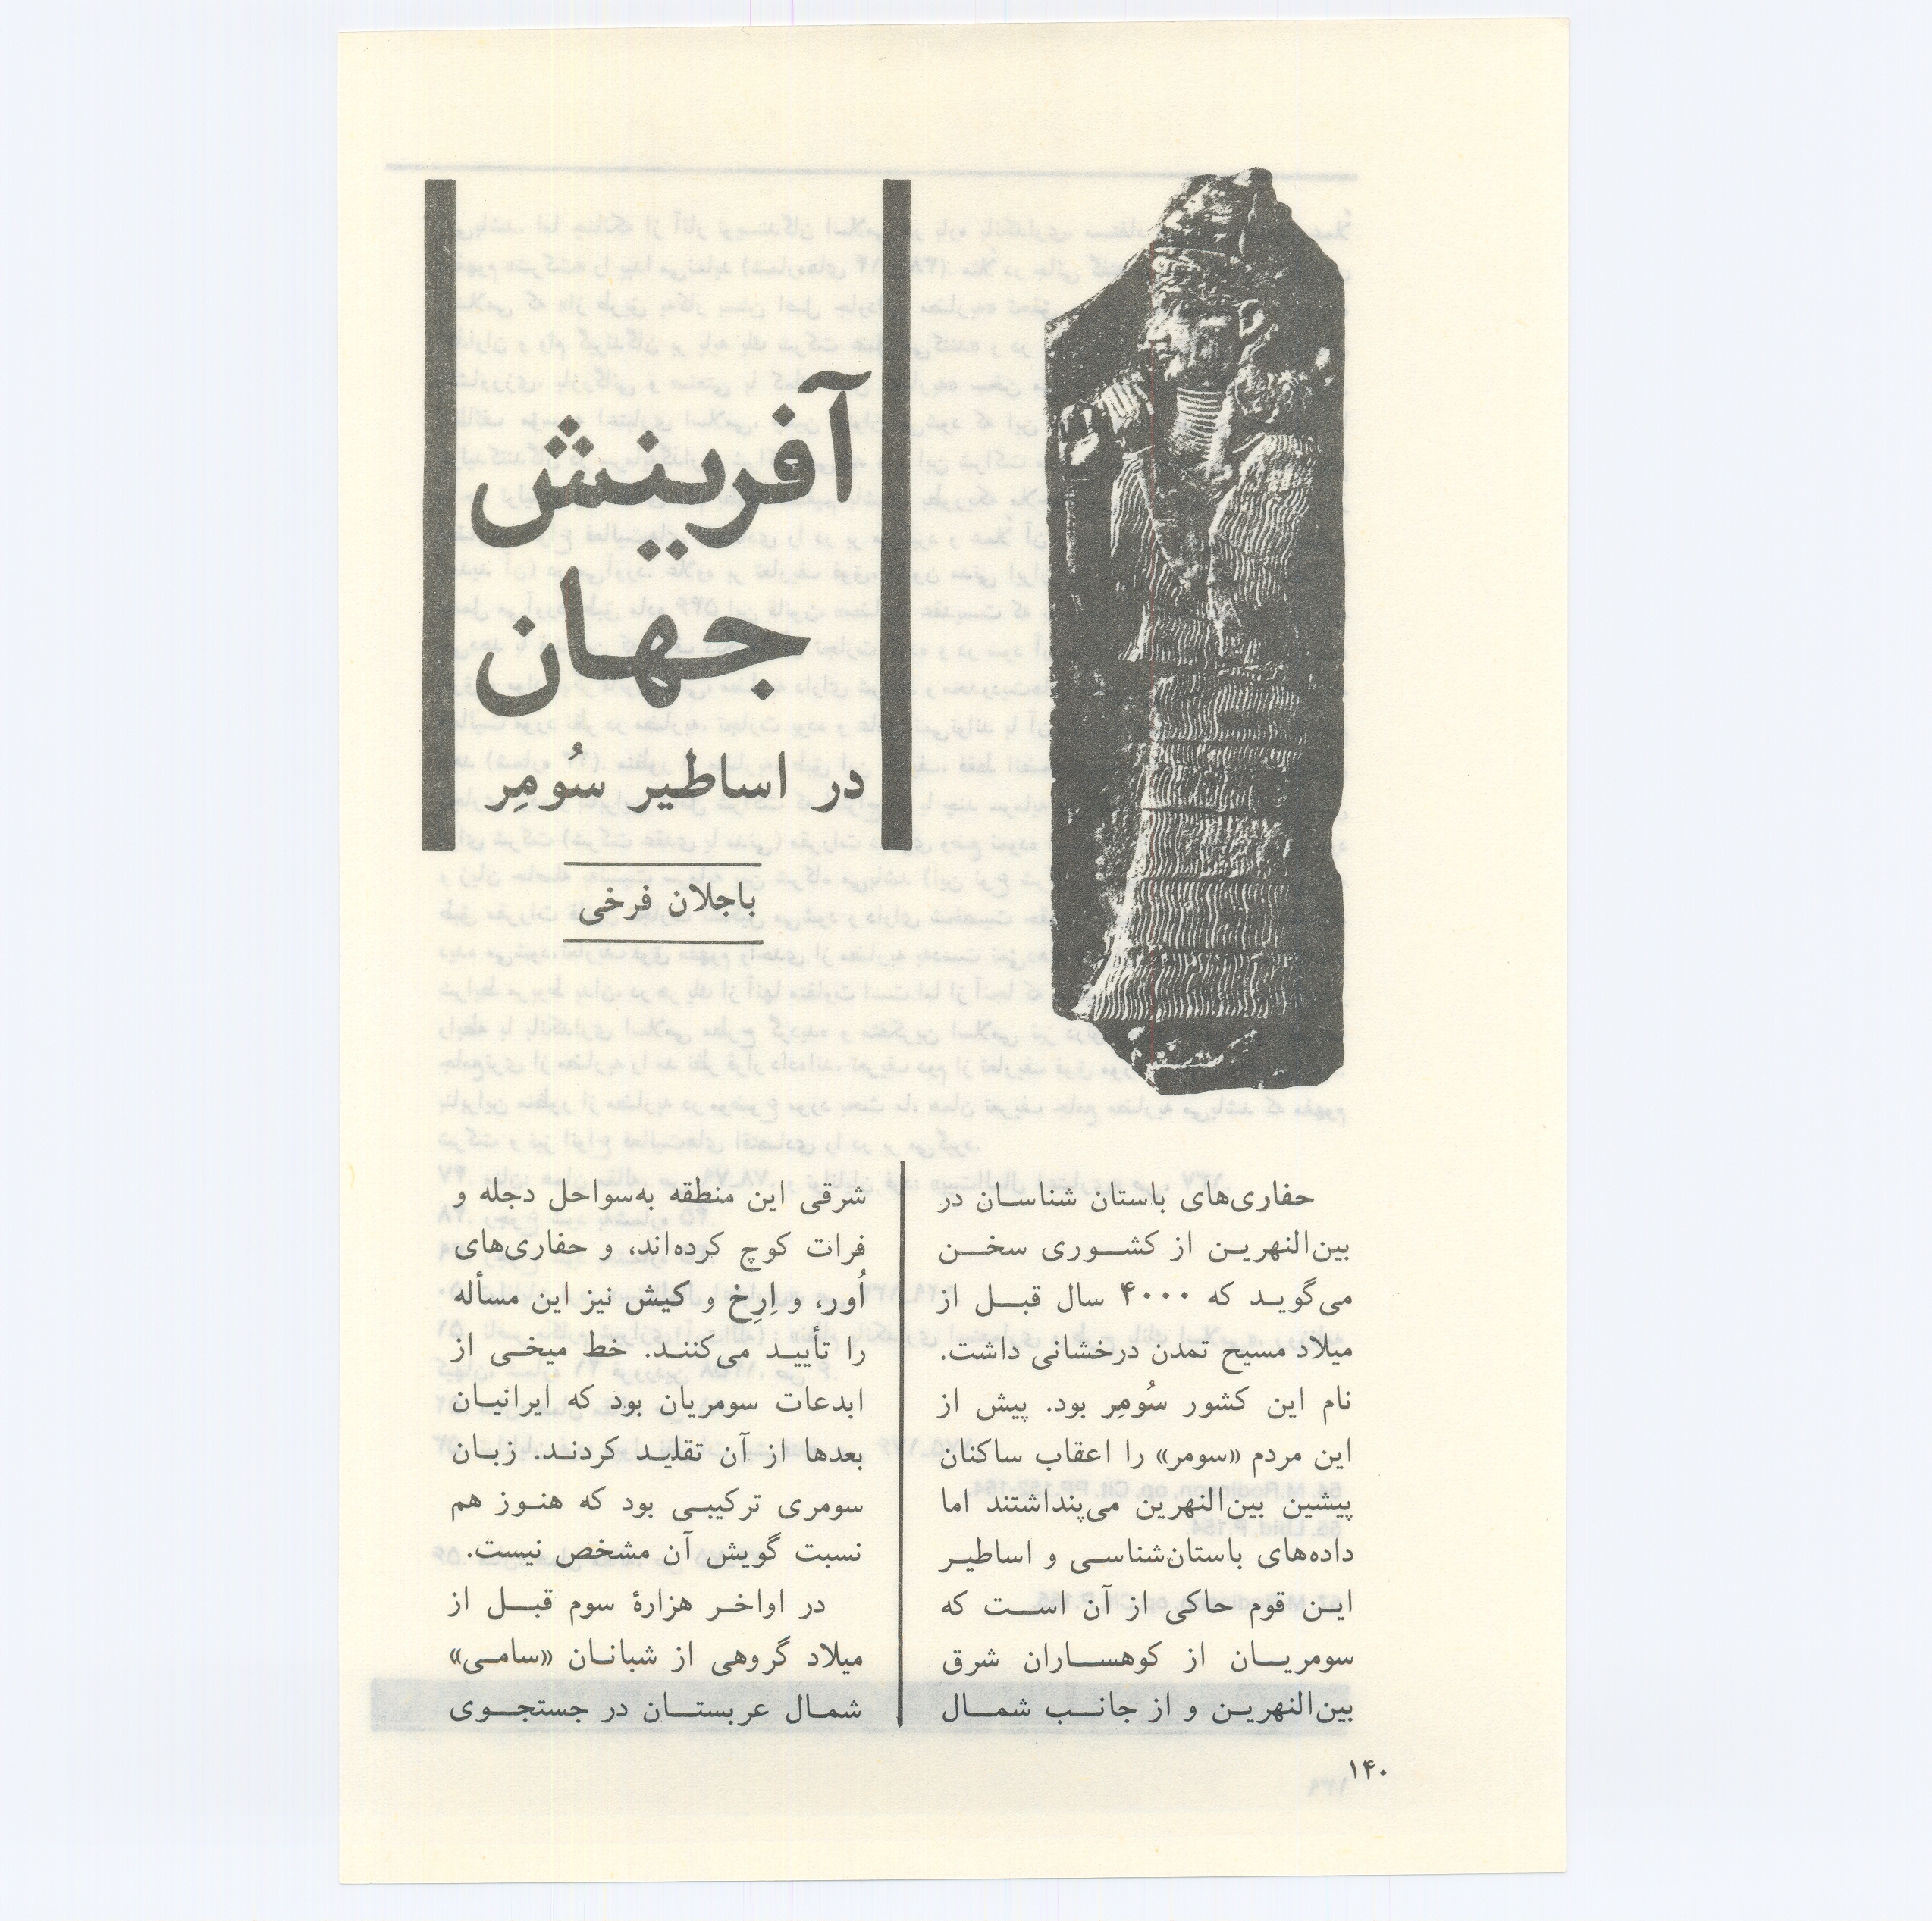 آفرینش
جهان
در اساطیر سُومِر
باجلان فرخی
حفاری‌های باستان شناسان در
بین‌النهرین از کشوری سخن
می‌گوید که ۴۰۰۰ سال قبل از
میلاد مسیح تمدن درخشانی داشت.
نام این کشور سُومِر بود. پیش از
این مردم «سومر» را اعقاب ساکنان
پیشین بین‌النهرین می‌پنداشتند اما
داده‌های باستان‌شناسی و اساطیر
این قوم حاکی از آن است که
سومریان از کوهساران شرق
بین‌النهرین و از جانب شمال
شرقی این منطقه به‌سواحل دجله و
فرات کوچ کرده‌اند، و حفاری‌های
اُور، و اِرِخ و کیش نیز این مسأله
را تأیید می‌کنند. خط میخی از
ابدعات سومریان بود که ایرانیان
بعدها از آن تقلید کردند. زبان
سومری ترکیبی بود که هنوز هم
نسبت گویش آن مشخص نیست.
در اواخر هزارهٔ سوم قبل از
میلاد گروهی از شبانان «سامی»
شمال عربستان در جستجوی
۱۴۰